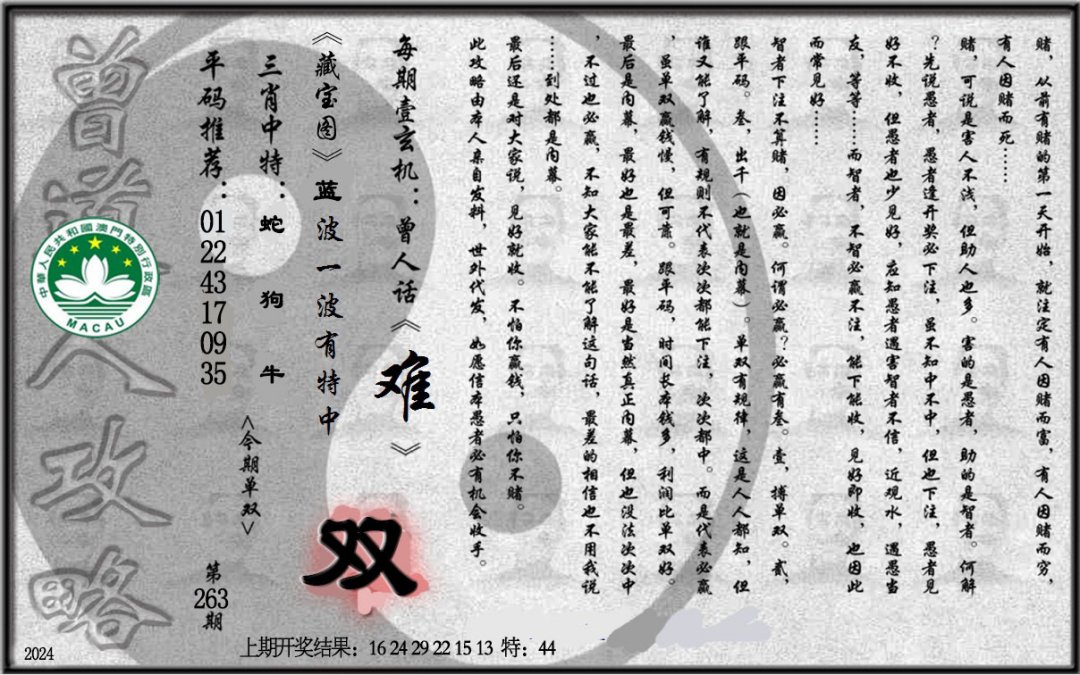 赌，从前有赌的第一天开始，就注定有人因赌而富，有人因赌而穷，
有人因赌而死……
赌，可说是害人不浅，但助人也多。害的是愚者，助的是智者。何解
？先说愚者，愚者逢开奖必下注，虽不知中不中，但也下注，愚者见
好不收，但愚者也少见好，应知愚者遇害智者不信，近观水，遇愚当
友，等等……而智者，不智必赢不注，能下能收，见好即收，也因此
而常见好……
智者下注不算赌，因必赢。何谓必赢？必赢有叁。壹，搏单双。贰，
跟平码。叁，出千（也就是内幕）。单双有规律，这是人人都知，但
谁又能了解，有规则不代表次次都能下注，次次都中。而是代表必赢
，虽单双赢钱慢，但可靠。跟平码，时间长本钱多，利润比单双好。
最后是内幕，最好也是最差，最好是当然真正内幕，但也没法次次中
，不过也必赢，不知大家能不能了解这句话，最差的相信也不用我说
……到处都是内幕。
最后还是对大家说，见好就收。不怕你赢钱，只怕你不赌。
此攻略由本人亲自发料，世外代发，如愿信本愚者必有机会收手。
每期壹玄机：曾人话《难》
《藏宝图》蓝波一波有特中
双
三肖中特：蛇 狗 牛
<今期单双>
平码推荐：01 22 43 17 09 35
第263期
曾道人攻略
中華人民共和國澳門特別行政區
MACAU
上期开奖结果：16 24 29 22 15 13 特：44
2024